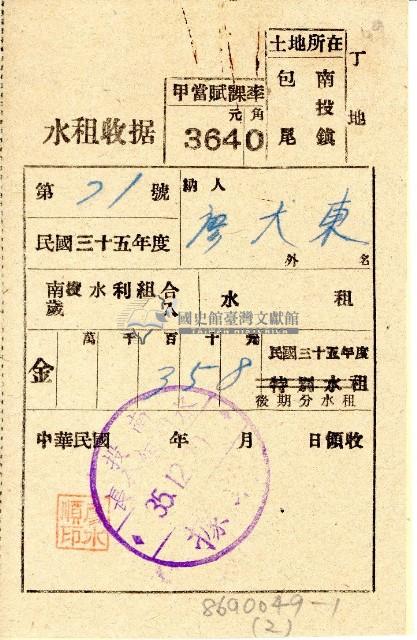 土地所在
南投鎮
包尾
丁地
甲當賦課率
元角
3640
水租收据
第71號
納人
廖大東
外 名
民國三十五年度
南投水利組合
歲入
水租
國史館臺灣文獻館
金
萬千百十元
358
民國三十五年度
特別水租
後期分水租
中華民國 年 月 日領收
35.12.
順印
8690049-1
(2)